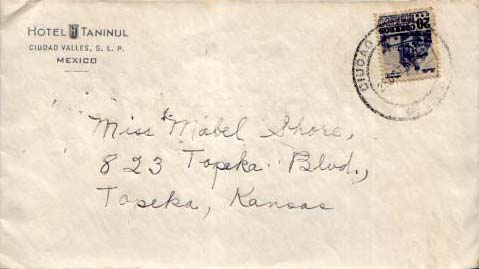 HOTEL TANINUL
CIUDAD VALLES, S. L. P.
MEXICO
20 CORREOS
CIUDAD
Miss Mabel Shore,
823 Topeka Blvd.,
Topeka, Kansas